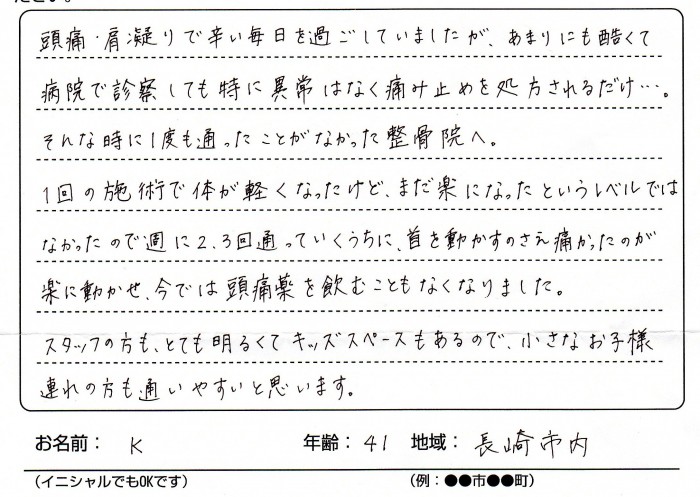 ださい。
頭痛・肩凝りで辛い毎日を過ごしていましたが、あまりにも酷くて
病院で診察しても特に異常はなく痛み止めを処方されるだけ…。
そんな時に1度も通ったことがなかった整骨院へ。
1回の施術で体が軽くなったけど、まだ楽になったというレベルでは
なかったので週に2、3回通っていくうちに、首を動かすのさえ痛かったのが
楽に動かせ、今では頭痛薬を飲むこともなくなりました。
スタッフの方も、とても明るくてキッズスペースもあるので、小さなお子様
連れの方も通いやすいと思います。
お名前： K 年齢： 41 地域： 長崎市内
（イニシャルでもOKです） （例：●●市●●町）